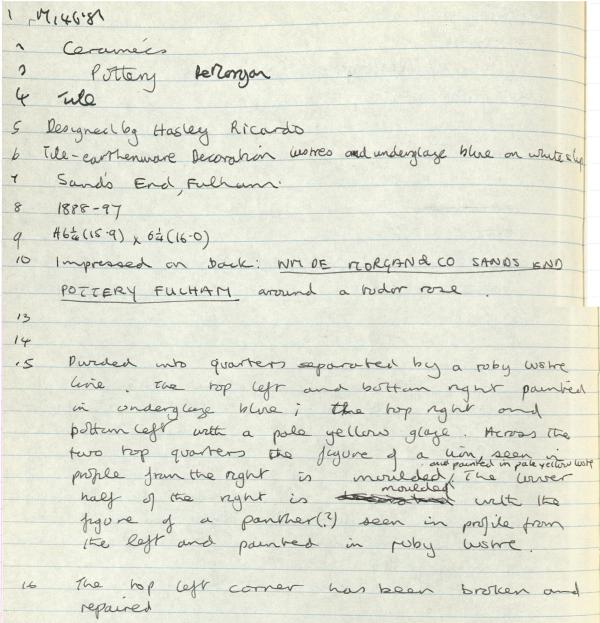 1 M,46'81
2 Ceramics
3 Pottery DeMorgan
4 Tile
5 Designed by Hasley Ricardo
6 Tile-earthenware Decoration lustres and underglaze blue on white slip
7 Sands End, Fulham.
8 1888-97
9 H6¼(15.9) x 6¼(16.0)
10 Impressed on back: WM DE MORGAN & CO SANDS END
POTTERY FULHAM around a tudor rose.
13
14
15 Divided into quarters separated by a ruby lustre
line. The top left and bottom right painted
in underglaze blue; the top right and
bottom left with a pale yellow glaze. Across the
two top quarters the figure of a lion, seen in
profile from the right is moulded, and painted in pale yellow lustre. The lower
half of the right is moulded with the
figure of a panther(?) seen in profile from
the left and painted in ruby lustre.
16 The top left corner has been broken and
repaired